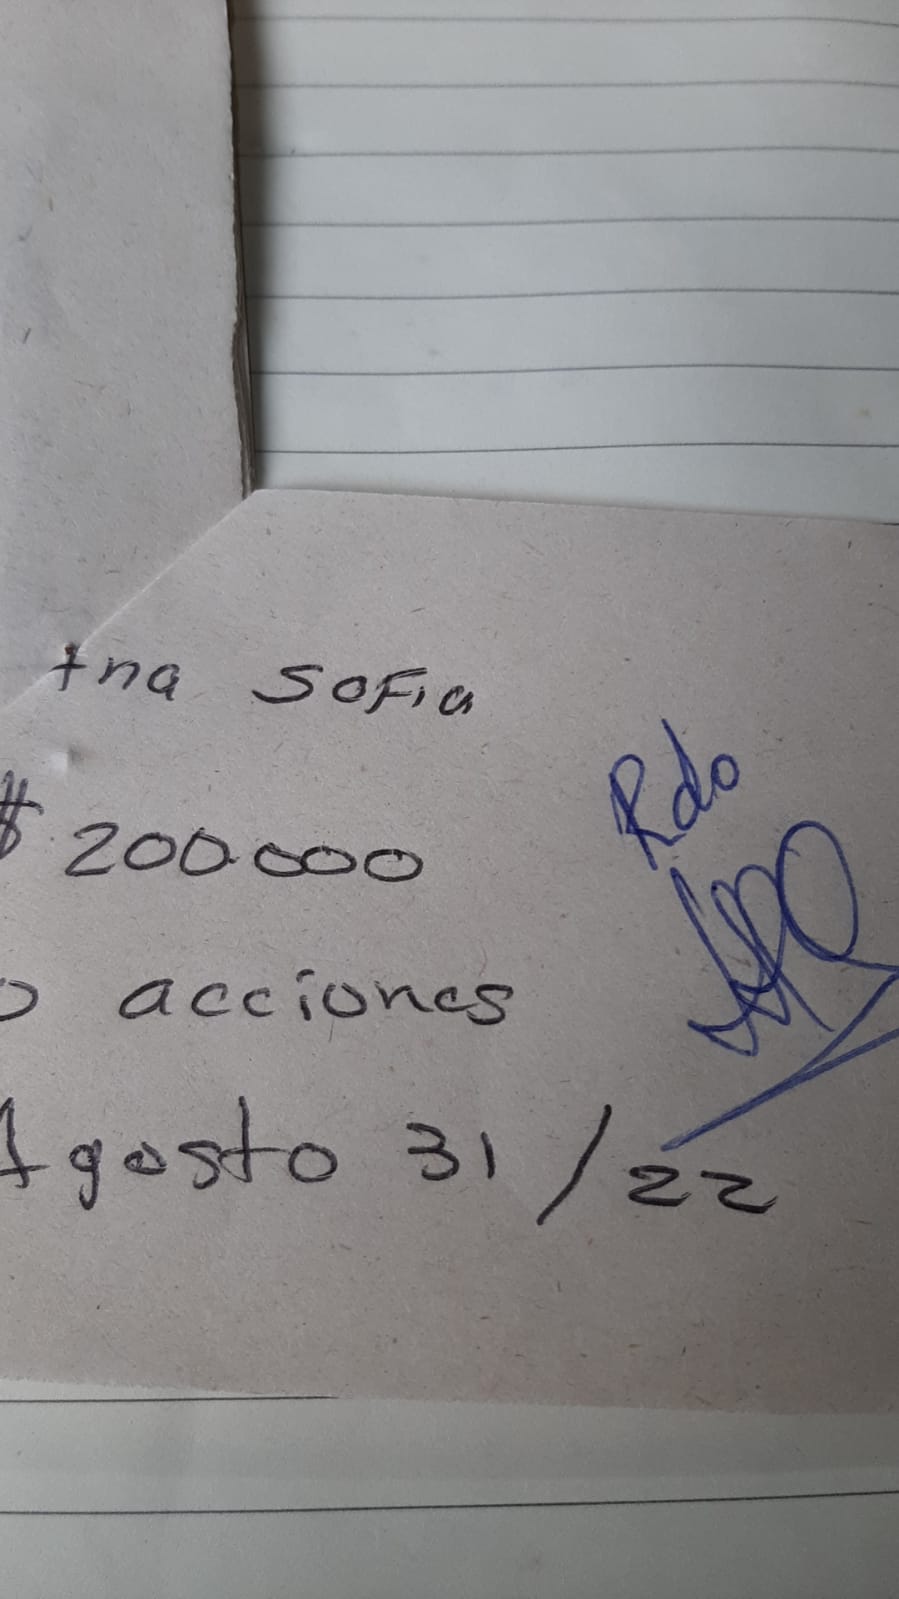 Ana Sofia
$ 200.000
Rdo
o acciones
Agosto 31 / 22